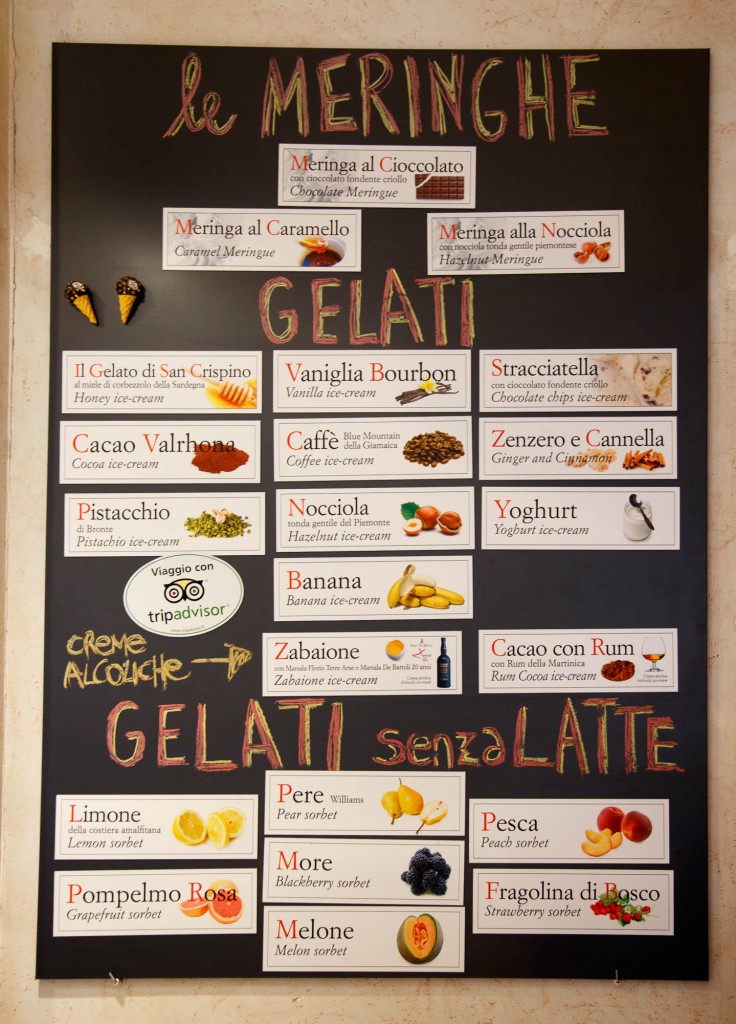 le MERINGHE
Meringa al Cioccolato
con cioccolato fondente criollo
Chocolate Meringue
Meringa al Caramello
Caramel Meringue
Meringa alla Nocciola
con nocciola tonda gentile piemontese
Hazelnut Meringue
GELATI
Il Gelato di San Crispino
al miele di corbezzolo della Sardegna
Honey ice-cream
Vaniglia Bourbon
Vanilla ice-cream
Stracciatella
con cioccolato fondente criollo
Chocolate chips ice-cream
Cacao Valrhona
Cocoa ice-cream
Caffè Blue Mountain
della Giamaica
Coffee ice-cream
Zenzero e Cannella
Ginger and Cinnamon
Pistacchio
di Bronte
Pistachio ice-cream
Nocciola
tonda gentile del Piemonte
Hazelnut ice-cream
Yoghurt
Yoghurt ice-cream
Viaggio con
tripadvisor®
Banana
Banana ice-cream
CREME
ALCOLICHE
Zabaione
con Marsala Florio Terre Arse o Marsala De Bartoli 20 anni
Zabaione ice-cream
Cacao con Rum
con Rum della Martinica
Rum Cocoa ice-cream
GELATI senza LATTE
Limone
della costiera amalfitana
Lemon sorbet
Pere Williams
Pear sorbet
Pesca
Peach sorbet
Pompelmo Rosa
Grapefruit sorbet
More
Blackberry sorbet
Fragolina di Bosco
Strawberry sorbet
Melone
Melon sorbet